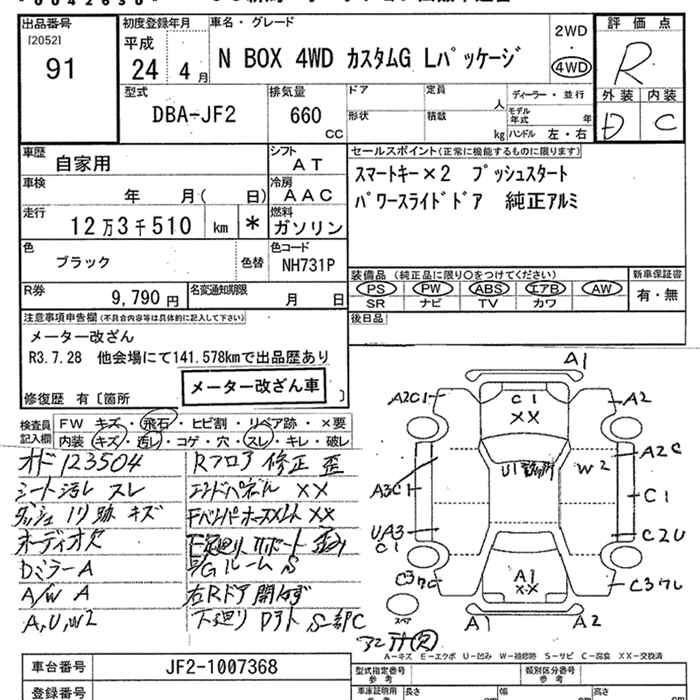 出品番号
[2052]
91
初度登録年月
平成
24 4 月
車名・グレード
N BOX 4WD カスタムG Lパッケージ
2WD
・
4WD
評価点
R
外装 内装
D C
型式
DBA-JF2
排気量
660
CC
ドア
形状
定員
人
積載
kg
ディーラー・並行
モデル年式 年
ハンドル 左・右
車歴
自家用
シフト
AT
車検
年 月( 日)
冷房
AAC
走行
12万3千510 km *
燃料
ガソリン
色
ブラック
色替
色コード
NH731P
R券
9,790 円
名変通知期限
月 日
セールスポイント(正常に機能するものに限ります)
スマートキー×2 プッシュスタート
パワースライドドア 純正アルミ
装備品 (純正品に限り○をつけてください)
PS PW ABS エアB AW
SR ナビ TV カワ
新車保証書
有・無
後日品
注意事項申告欄(不具合内容等は具体的に記入して下さい)
メーター改ざん
R3.7.28 他会場にて141.578kmで出品歴あり
修復歴 有〔箇所 〕
メーター改ざん車
検査員記入欄
FW キズ・飛石・ヒビ割・リペア跡・×要
内装 キズ・汚レ・コゲ・穴・スレ・キレ・破レ
オド 123504
シート汚レ スレ
ダッシュ リリ跡 キズ
オーディオ欠
DミラーA
A/W A
A,U,W2
Rフロア 修正 歪
エンドパネル XX
Fバンパホースメント XX
下廻りサポート 歪み
E/Gルーム S
右Rドア開けず
下廻り Dラト S一部C
A1
A2C1
C1
XX
A2
A3C1
U1
W2
A2C
C1
UA3
C1
C2U
C3ワレ
A1
X-X
C3ワレ
スペア
A1
A2
A-キズ E-エクボ U-凹み W-補修跡 S-サビ C-腐食 XX-交換済
車台番号
JF2-1007368
登録番号
型式指定番号
参考
類別区分番号
参考
車庫証明用
参考
長さ cm
幅 cm
高さ cm